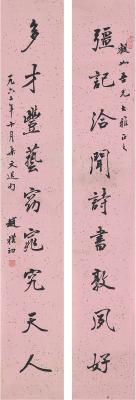 毅如吾兄大雅正之
彊記洽聞詩書敦夙好
多才豐藝窈窕究天人
一九六三年十月集文選句
趙樸初